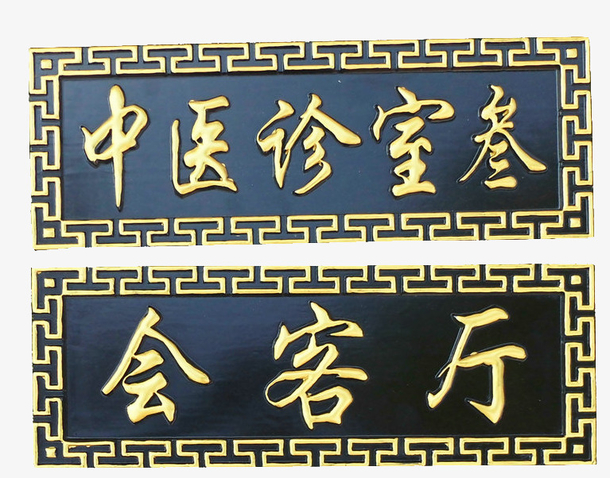 中医诊室叁
会客厅